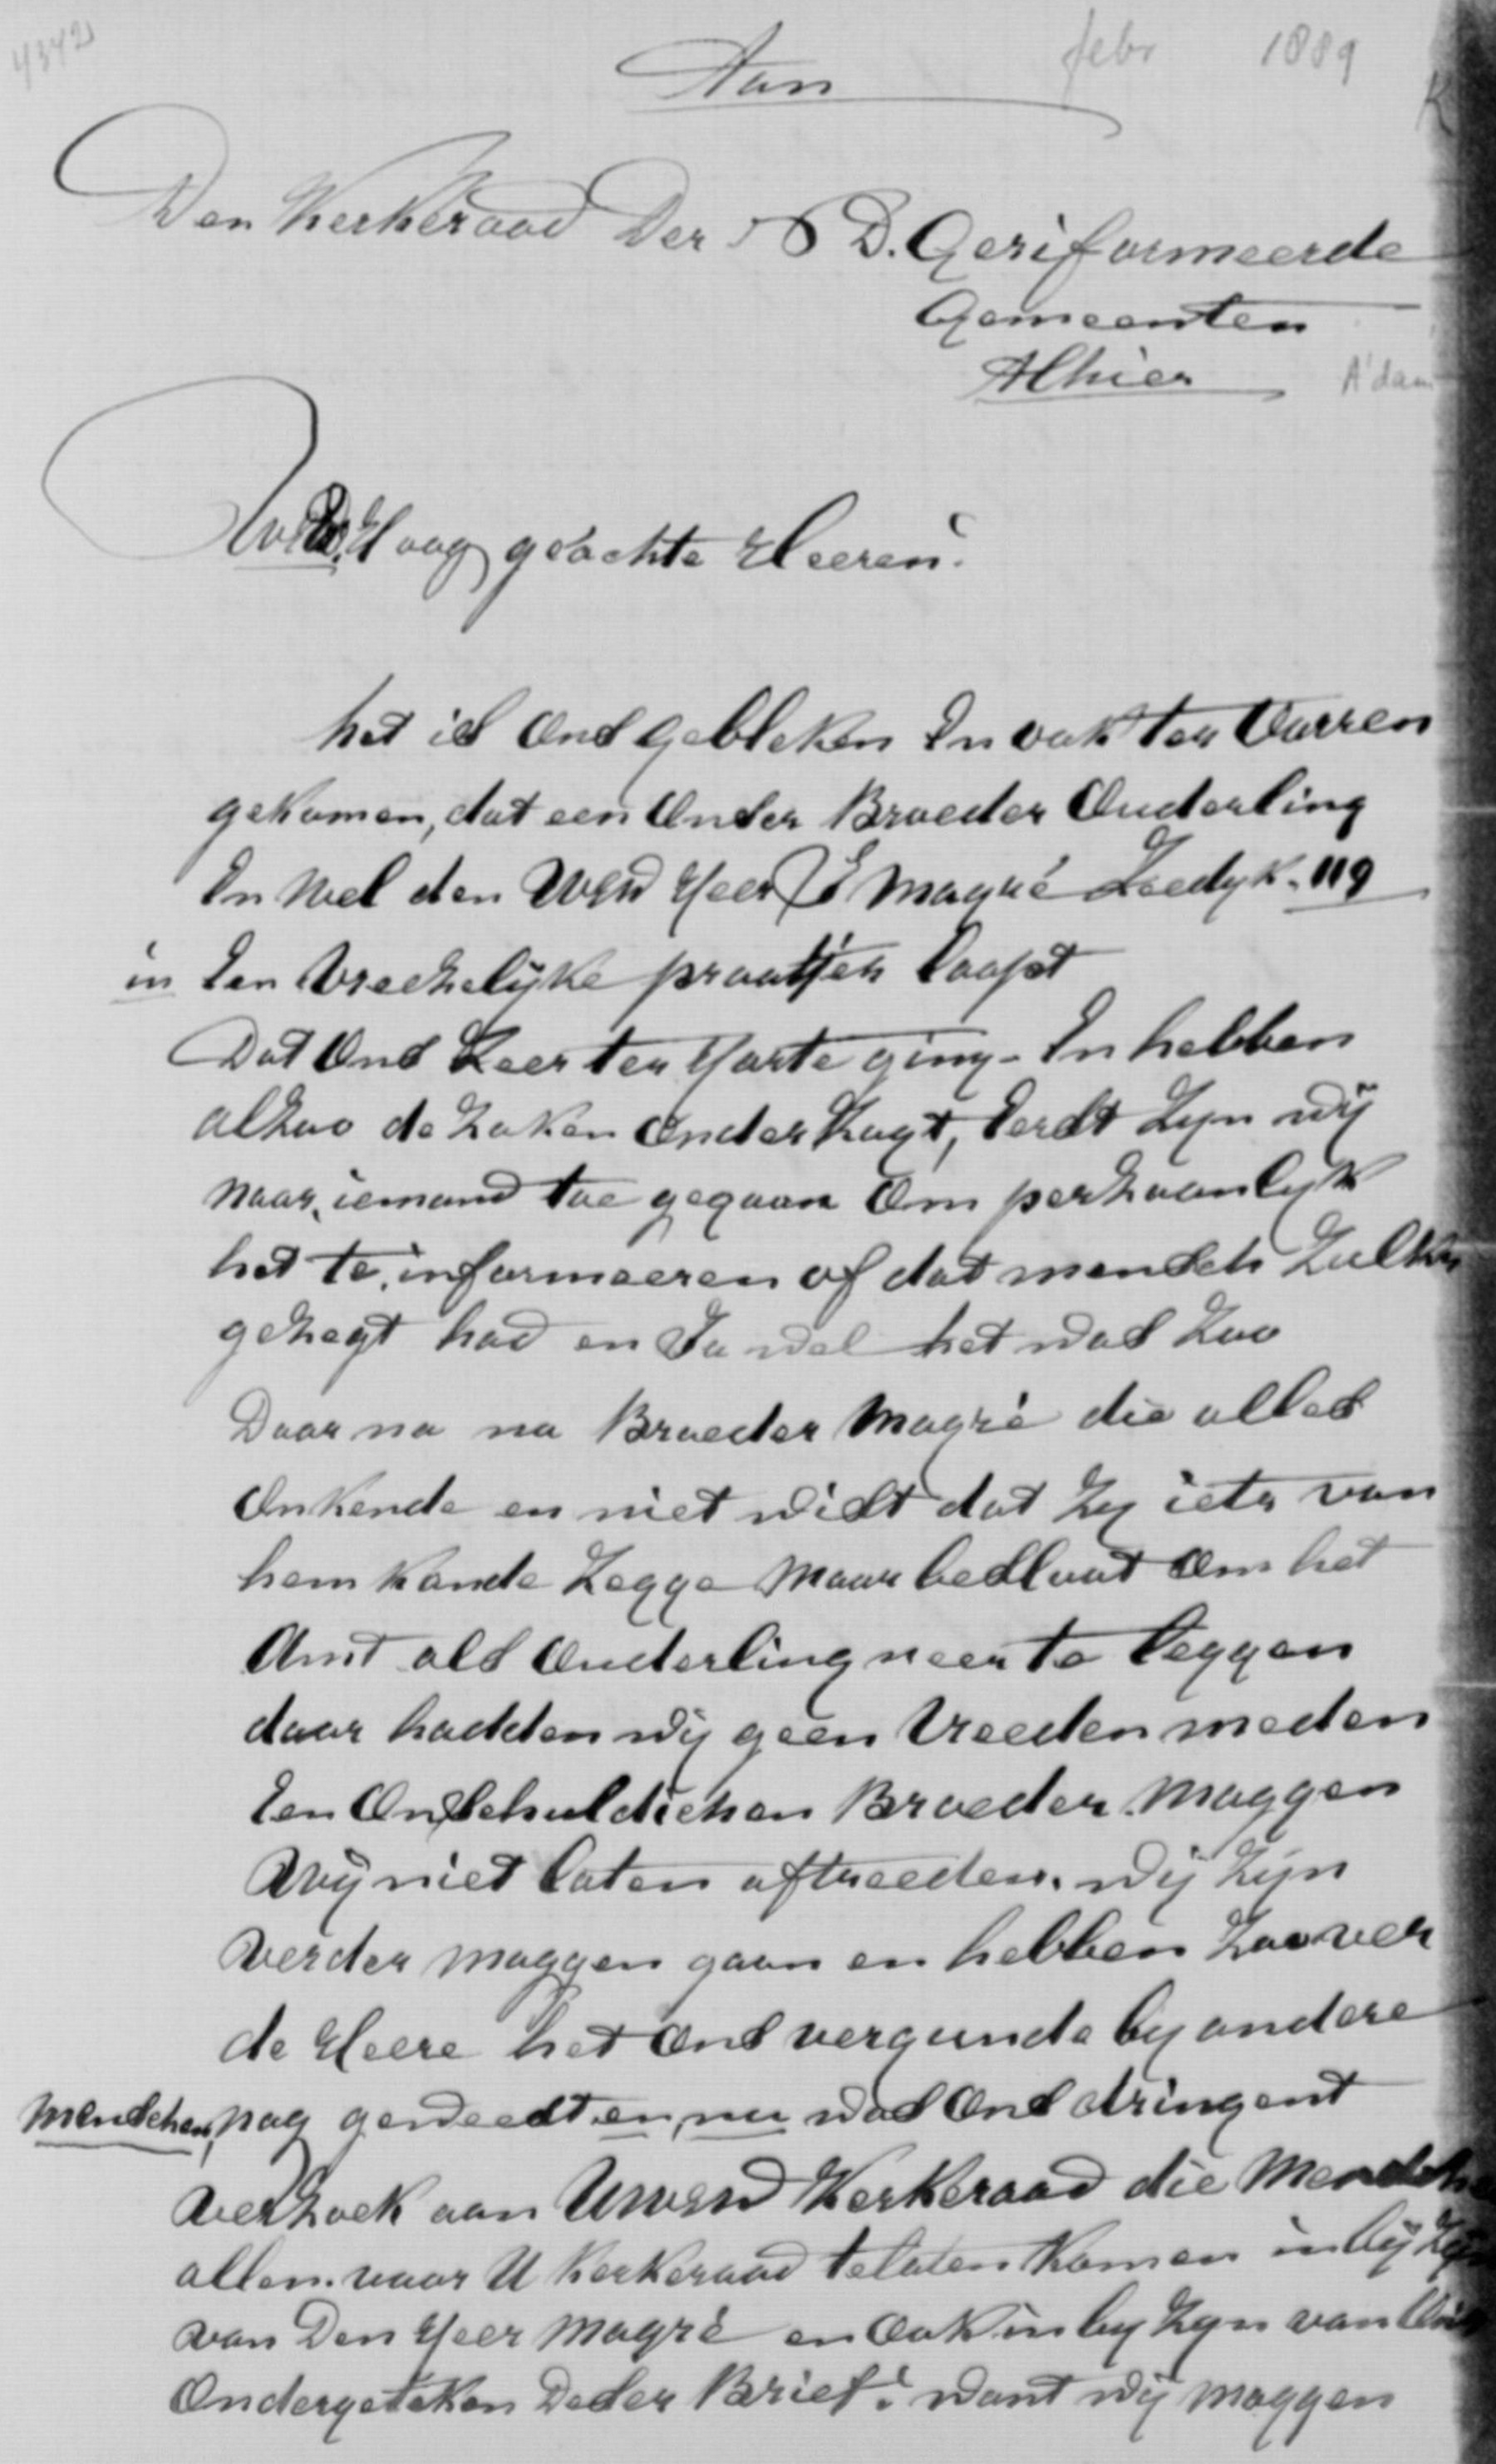 4342
Aan
febr 1889
K
Den Kerkeraad Der N D. Geriformeerde
Gemeenten
Alhier
A'dam
Hoog geachte Heeren.
het is Ons gebleken En ook ter Oorren
gekomen, dat een Onser Broeder Ouderling
En Wel den WEW Heer E Magré Zeedyk. 119
in Een Vreeselyke praatjes loopt
Dat Ons Zeer ter Harte ging - En hebben
alzoo de Zaken Onderzogt, Eerst Zyn Wij
Naar iemand toe gegaan Om perzoonlyk
het te informeeren of dat mensch Zulks
gezegt had en Ja wel het was Zoo
Daar na na Broeder Magré die alles
Onkende en niet wist dat Zy iets van
hem konde Zegge Maar besloot Om het
Amt als Ouderling neer te leggen
daar hadden Wij geen Vreeden meden
Een Onschuldichen Broeder Moggen
Wij niet laten aftreeden. Wij Zijn
Verder Moggen gaan en hebben Zoo ver
de Heere het Ons vergunde by andere
Menschen, nog geweest en, nu was Ons dringent
Verzoek aan UWEW Kerkeraad die Mensche
allen voor U Kerkeraad te laten Komen in bij Zijn
van Den Heer Magré en Ook in by Zyn van Ons
Ondergeteken Deser Brief: Want Wij Moggen